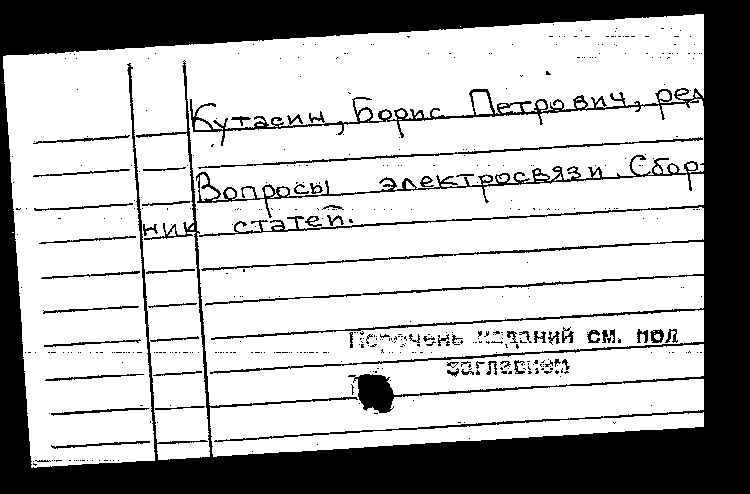 Кутасин, Борис Петрович, ред
Вопросы электросвязи. Сбор-
ник статей.
Перечень изданий см. под
заглавием